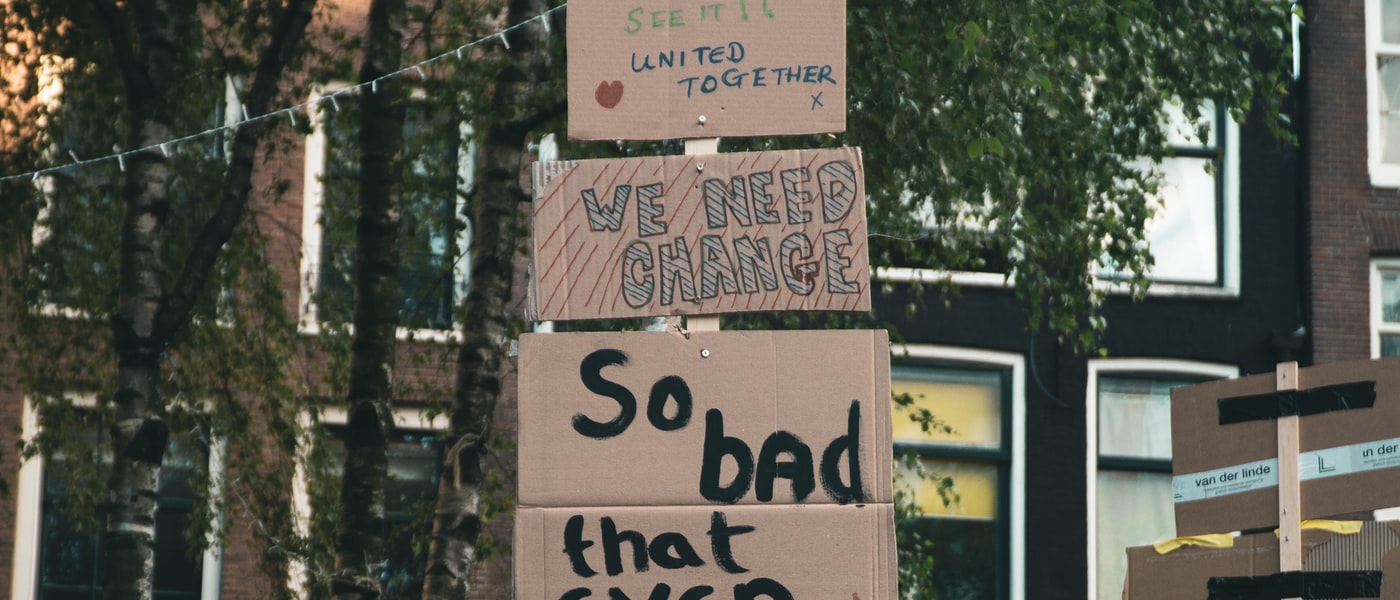 SEE IT !!
UNITED
TOGETHER
x
WE NEED
CHANGE
So
bAd
that
even
van der linde
in der